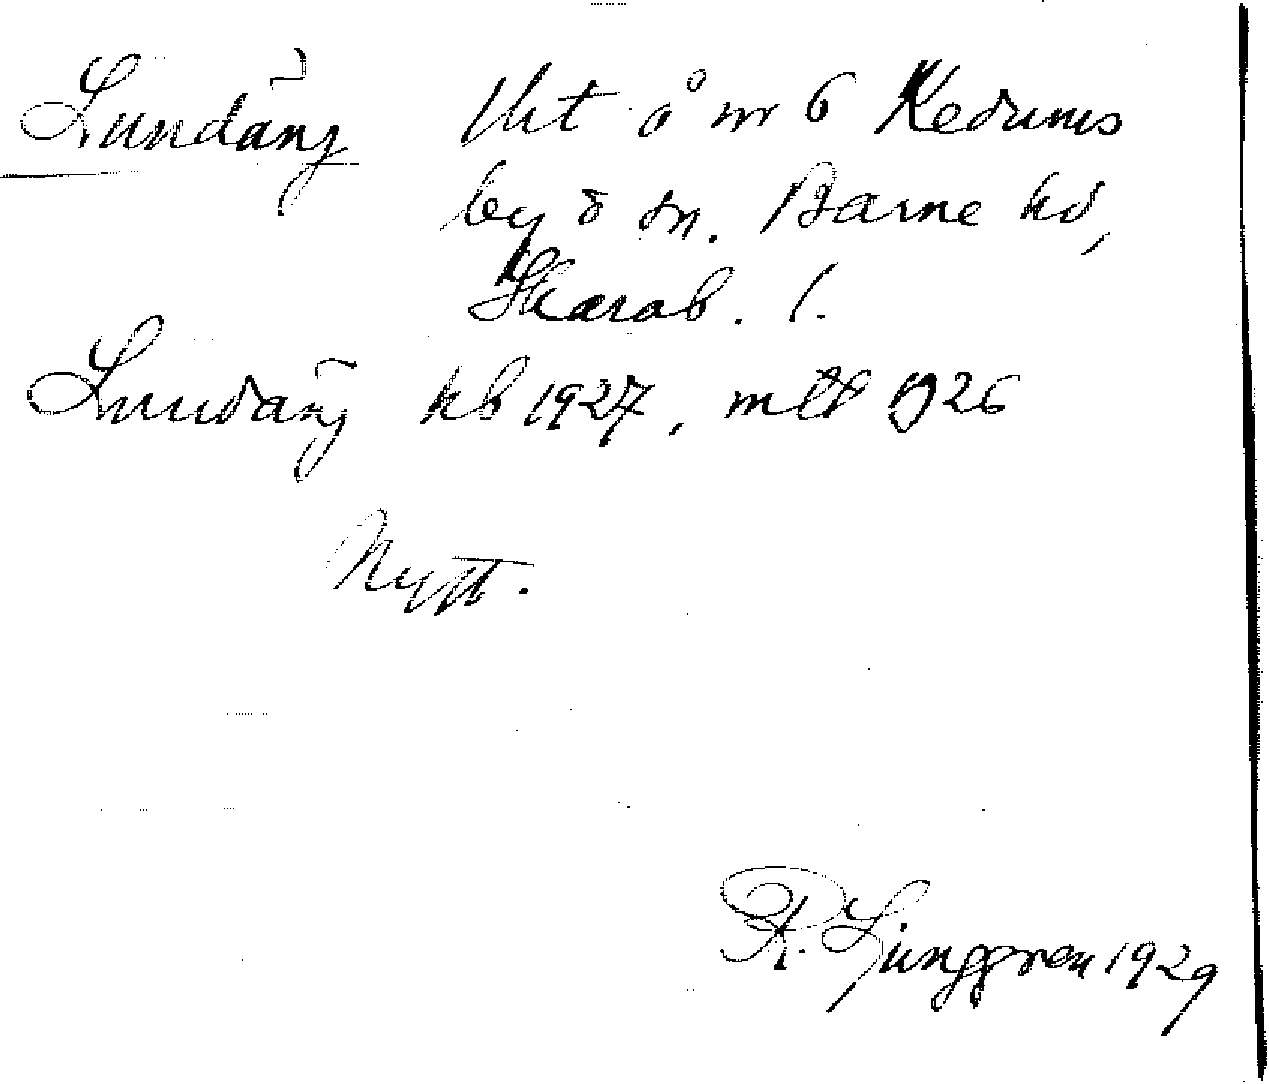 Lundäng lht å nr 6 Kedums
by o sn. Barne hd,
Skarab. l.
Lundäng kb 1927, mlt 1926
Nytt.
R. Ljunggren 1929